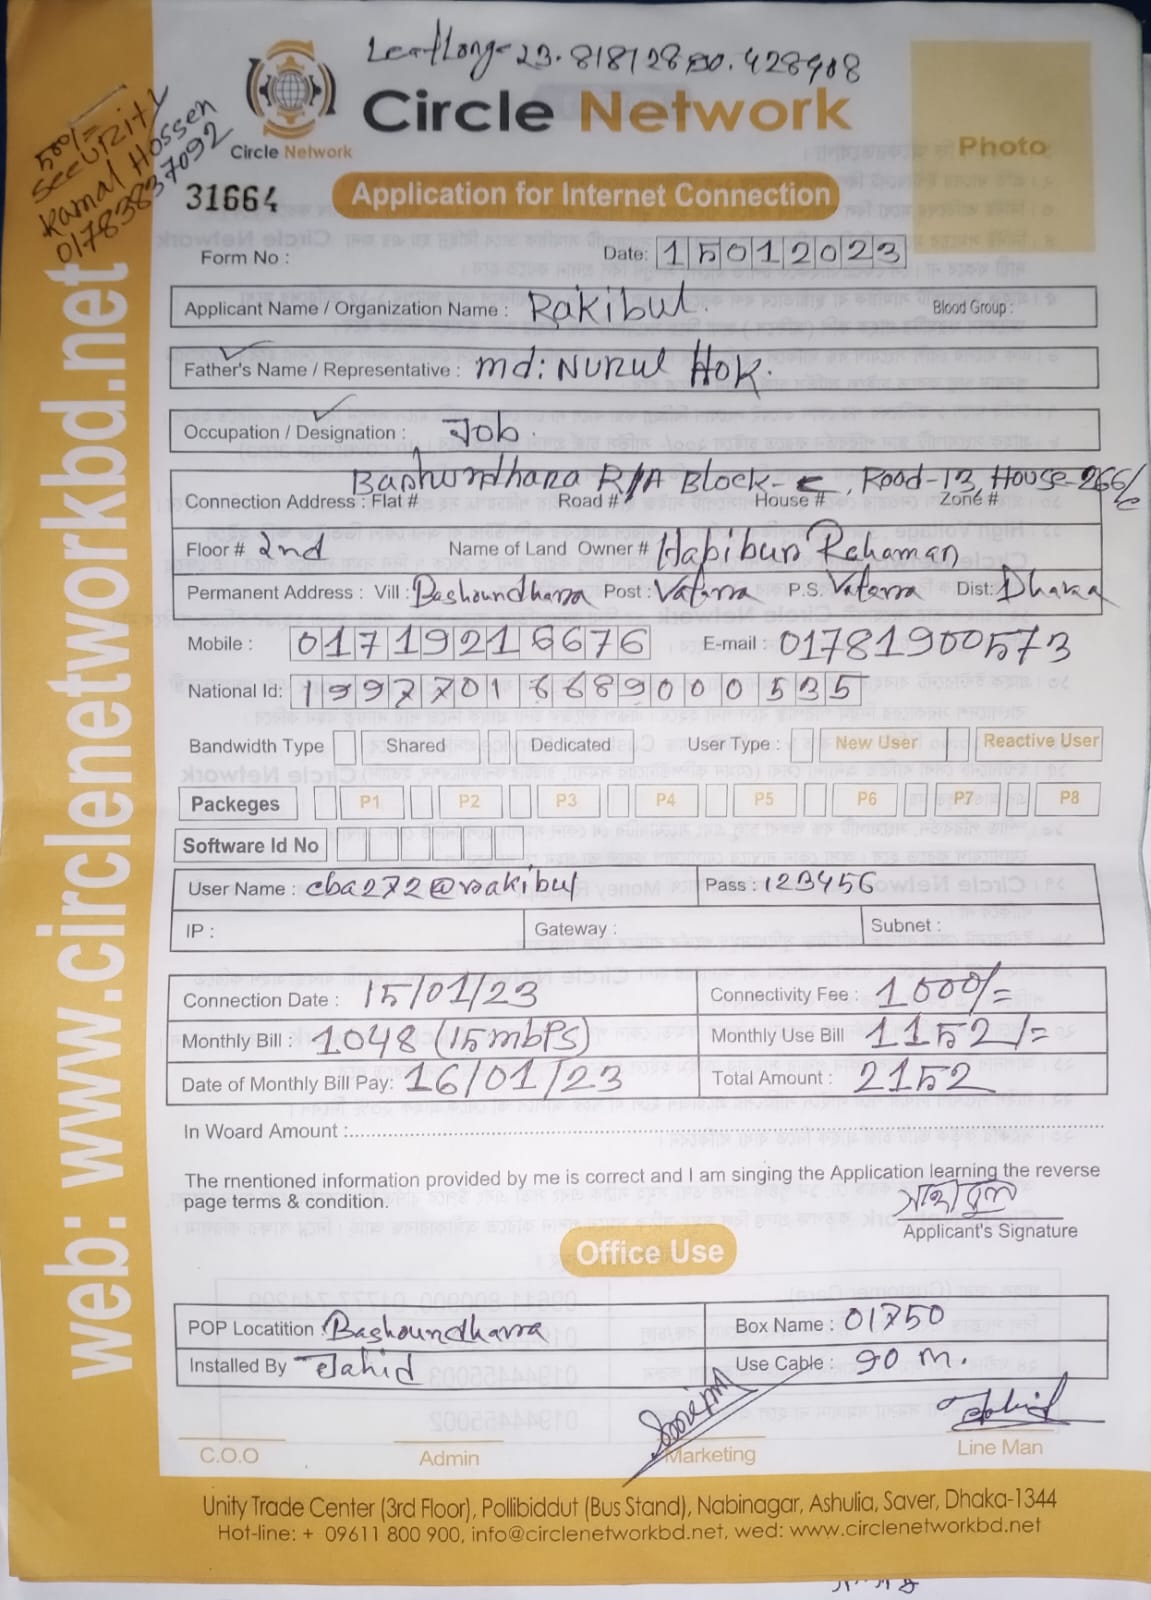 Leatlong-23.818128 90.428908
Circle Network
Circle Network
50/=
SeeURity
Kamal Hossen
01783837092
Photo
31664
Application for Internet Connection
Form No :
Date: 15012023
Applicant Name / Organization Name : Rakibul.
Blood Group :
Father's Name / Representative : md: NURul Hok.
Occupation / Designation : Job.
Bashundhara R/A Block-C, Road-13, House-266/c
Connection Address : Flat # Road # House # Zone #
Floor # 2nd Name of Land Owner # Habibur Rahaman
Permanent Address : Vill : Bashoundhara Post : Vatara P.S. Vatara Dist: Dhaka
Mobile : 01719216676 E-mail : 01781900573
National Id: 19977016689000535
Bandwidth Type Shared Dedicated User Type : New User Reactive User
Packeges P1 P2 P3 P4 P5 P6 P7 P8
Software Id No
User Name : cba272@rakibul Pass : 123456
IP : Gateway : Subnet :
Connection Date : 15/01/23 Connectivity Fee : 1000/=
Monthly Bill : 1048 (15mbPS) Monthly Use Bill 1152/=
Date of Monthly Bill Pay: 16/01/23 Total Amount : 2152
In Woard Amount :
The rnentioned information provided by me is correct and I am singing the Application learning the reverse
page terms & condition.
Applicant's Signature
Office Use
POP Locatition : Bashoundhara Box Name : 01750
Installed By Jahid Use Cable : 90 m.
C.O.O Admin Marketing Line Man
Unity Trade Center (3rd Floor), Pollibiddut (Bus Stand), Nabinagar, Ashulia, Saver, Dhaka-1344
Hot-line: + 09611 800 900, info@circlenetworkbd.net, wed: www.circlenetworkbd.net
web: www.circlenetworkbd.net